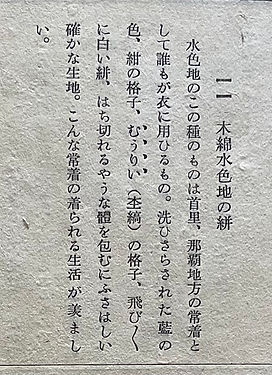 一一 木綿水色地の絣
水色地のこの種のものは首里、那覇地方の常着と
して誰もが衣に用ひるもの。洗ひさらされた藍の
色、紺の格子、むぅりい（杢縞）の格子、飛び〱
に白い絣、はち切れるやうな體を包むにふさはしい
確かな生地。こんな常着の着られる生活が羨まし
い。